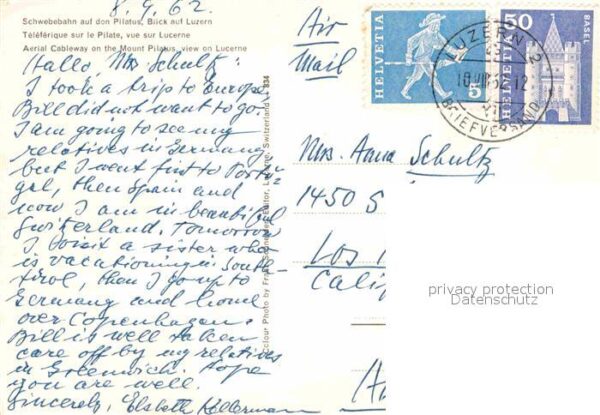 8.9.62.
Schwebebahn auf den Pilatus, Blick auf Luzern
Téléférique sur le Pilate, vue sur Lucerne
Aerial Cableway on the Mount Pilatus, view on Lucerne
Hallo, Mrs Schultz:
I took a trip to Europe
Bill did not want to go.
I am going to see my
relatives in Germany
but I went first to Portu-
gal, then Spain and
now I am in beautiful
Switzerland. Tomorrow
I visit a sister who
is vacationing in South-
tirol, then I go up to
Germany and home
over Copenhagen.
Bill is well taken
care off by my relatives
in Greenwich. Hope
you are well.
Sincerely, Elsbeth Kellermann
Colour Photo by
Lucerne, Switzerland
834
Air
Mail
HELVETIA
5
50
BASEL
HELVETIA
LUZERN 2
12
BRIEFVERSAND
Mrs. Anna Schultz
1450 S
Los
Calif
privacy protection
Datenschutz